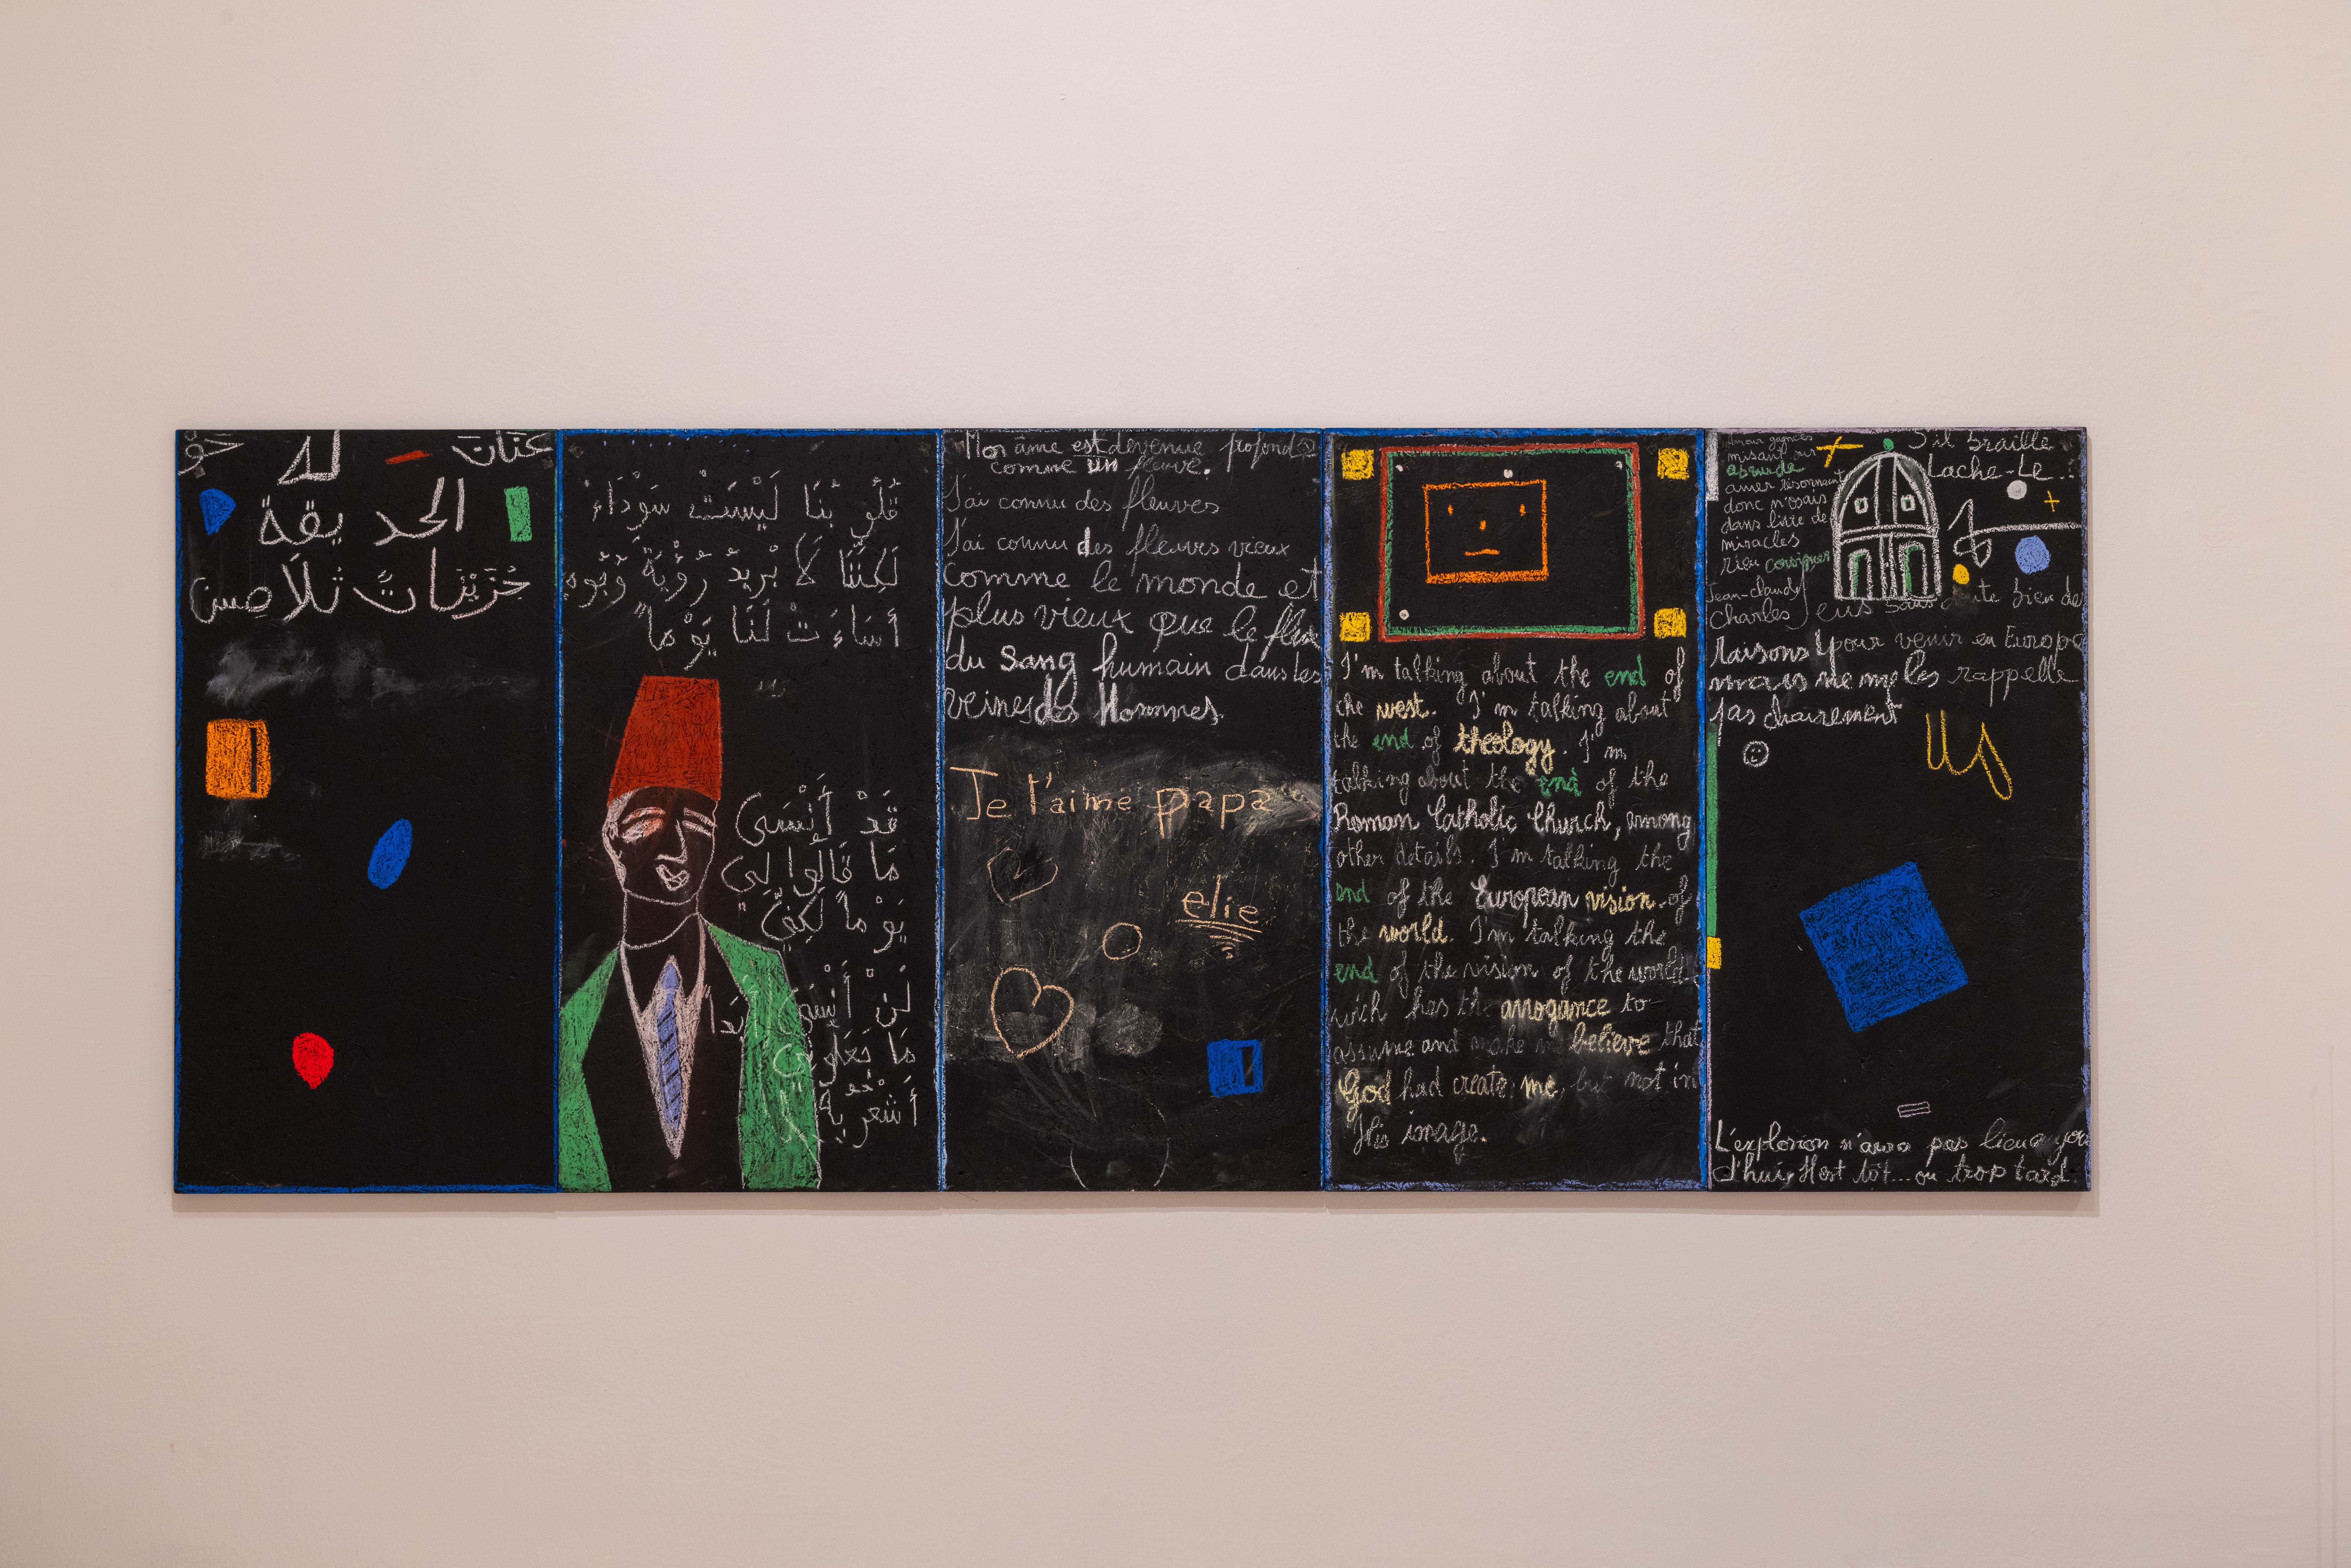 الحديقة
قُلُوبُنَا لَيْسَتْ سَوْدَاءَ
لَكِنَّنَا لَا نُرِيدُ رُؤْيَةَ وُجُوهٍ
أَسَاءَتْ لَنَا يَوْماً
قَدْ أَنْسَى
مَا قَالُوا لِي
يَوْماً لَكِنِّي
لَنْ أَنْسَى أَبَداً
مَا جَعَلُونِي
أَشْعُرُ بِهِ
Mon âme est devenue profonde
comme un fleuve.
J'ai connu des fleuves
J'ai connu des fleuves vieux
comme le monde et
plus vieux que le flux
du sang humain dans les
veines des Hommes
Je t'aime papa
elie
I'm talking about the end of
the west. I'm talking about
the end of theology. I'm
talking about the end of the
Roman Catholic Church, among
other details. I'm talking the
end of the European vision of
the world. I'm talking the
end of the vision of the world
wich has the arrogance to
assume and make me believe that
God had create me, but not in
His image.
S'il braille
Lache-Le..!
misant sur
absurde
amer
donc n'osais
dans livre de
miracles
rieu
Jean-claude
Charles J'eus sans doute bien des
raisons pour venir en Europe
mais ne me les rappelle
pas clairement
L'explosion n'aura pas lieu aujour
d'hui. Il est tôt... ou trop tard.